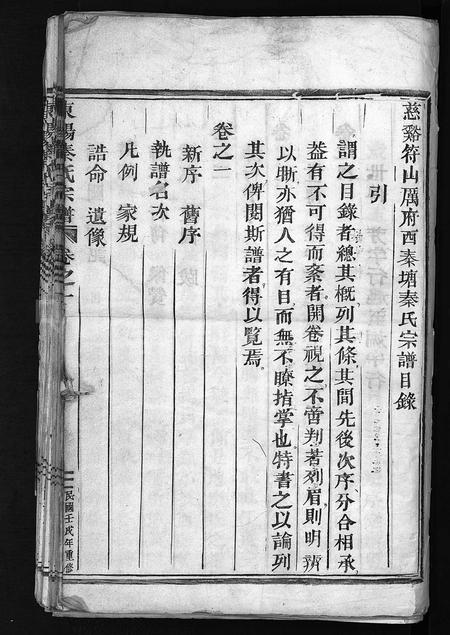 慈谿符山厲府西秦塘秦氏宗譜目錄
引
謂之目錄者總其概列其條其間先後次序分合相承
葢有不可得而紊者開卷視之不啻判若列眉則明辨
以晰亦猶人之有目而無不瞭指掌也特書之以論列
其次俾閱斯譜者得以覽焉
卷之一
新序 舊序
執譜名次
凡例 家規
誥命 遺像
東陽秦氏宗譜 卷之一
民國壬戌年重修